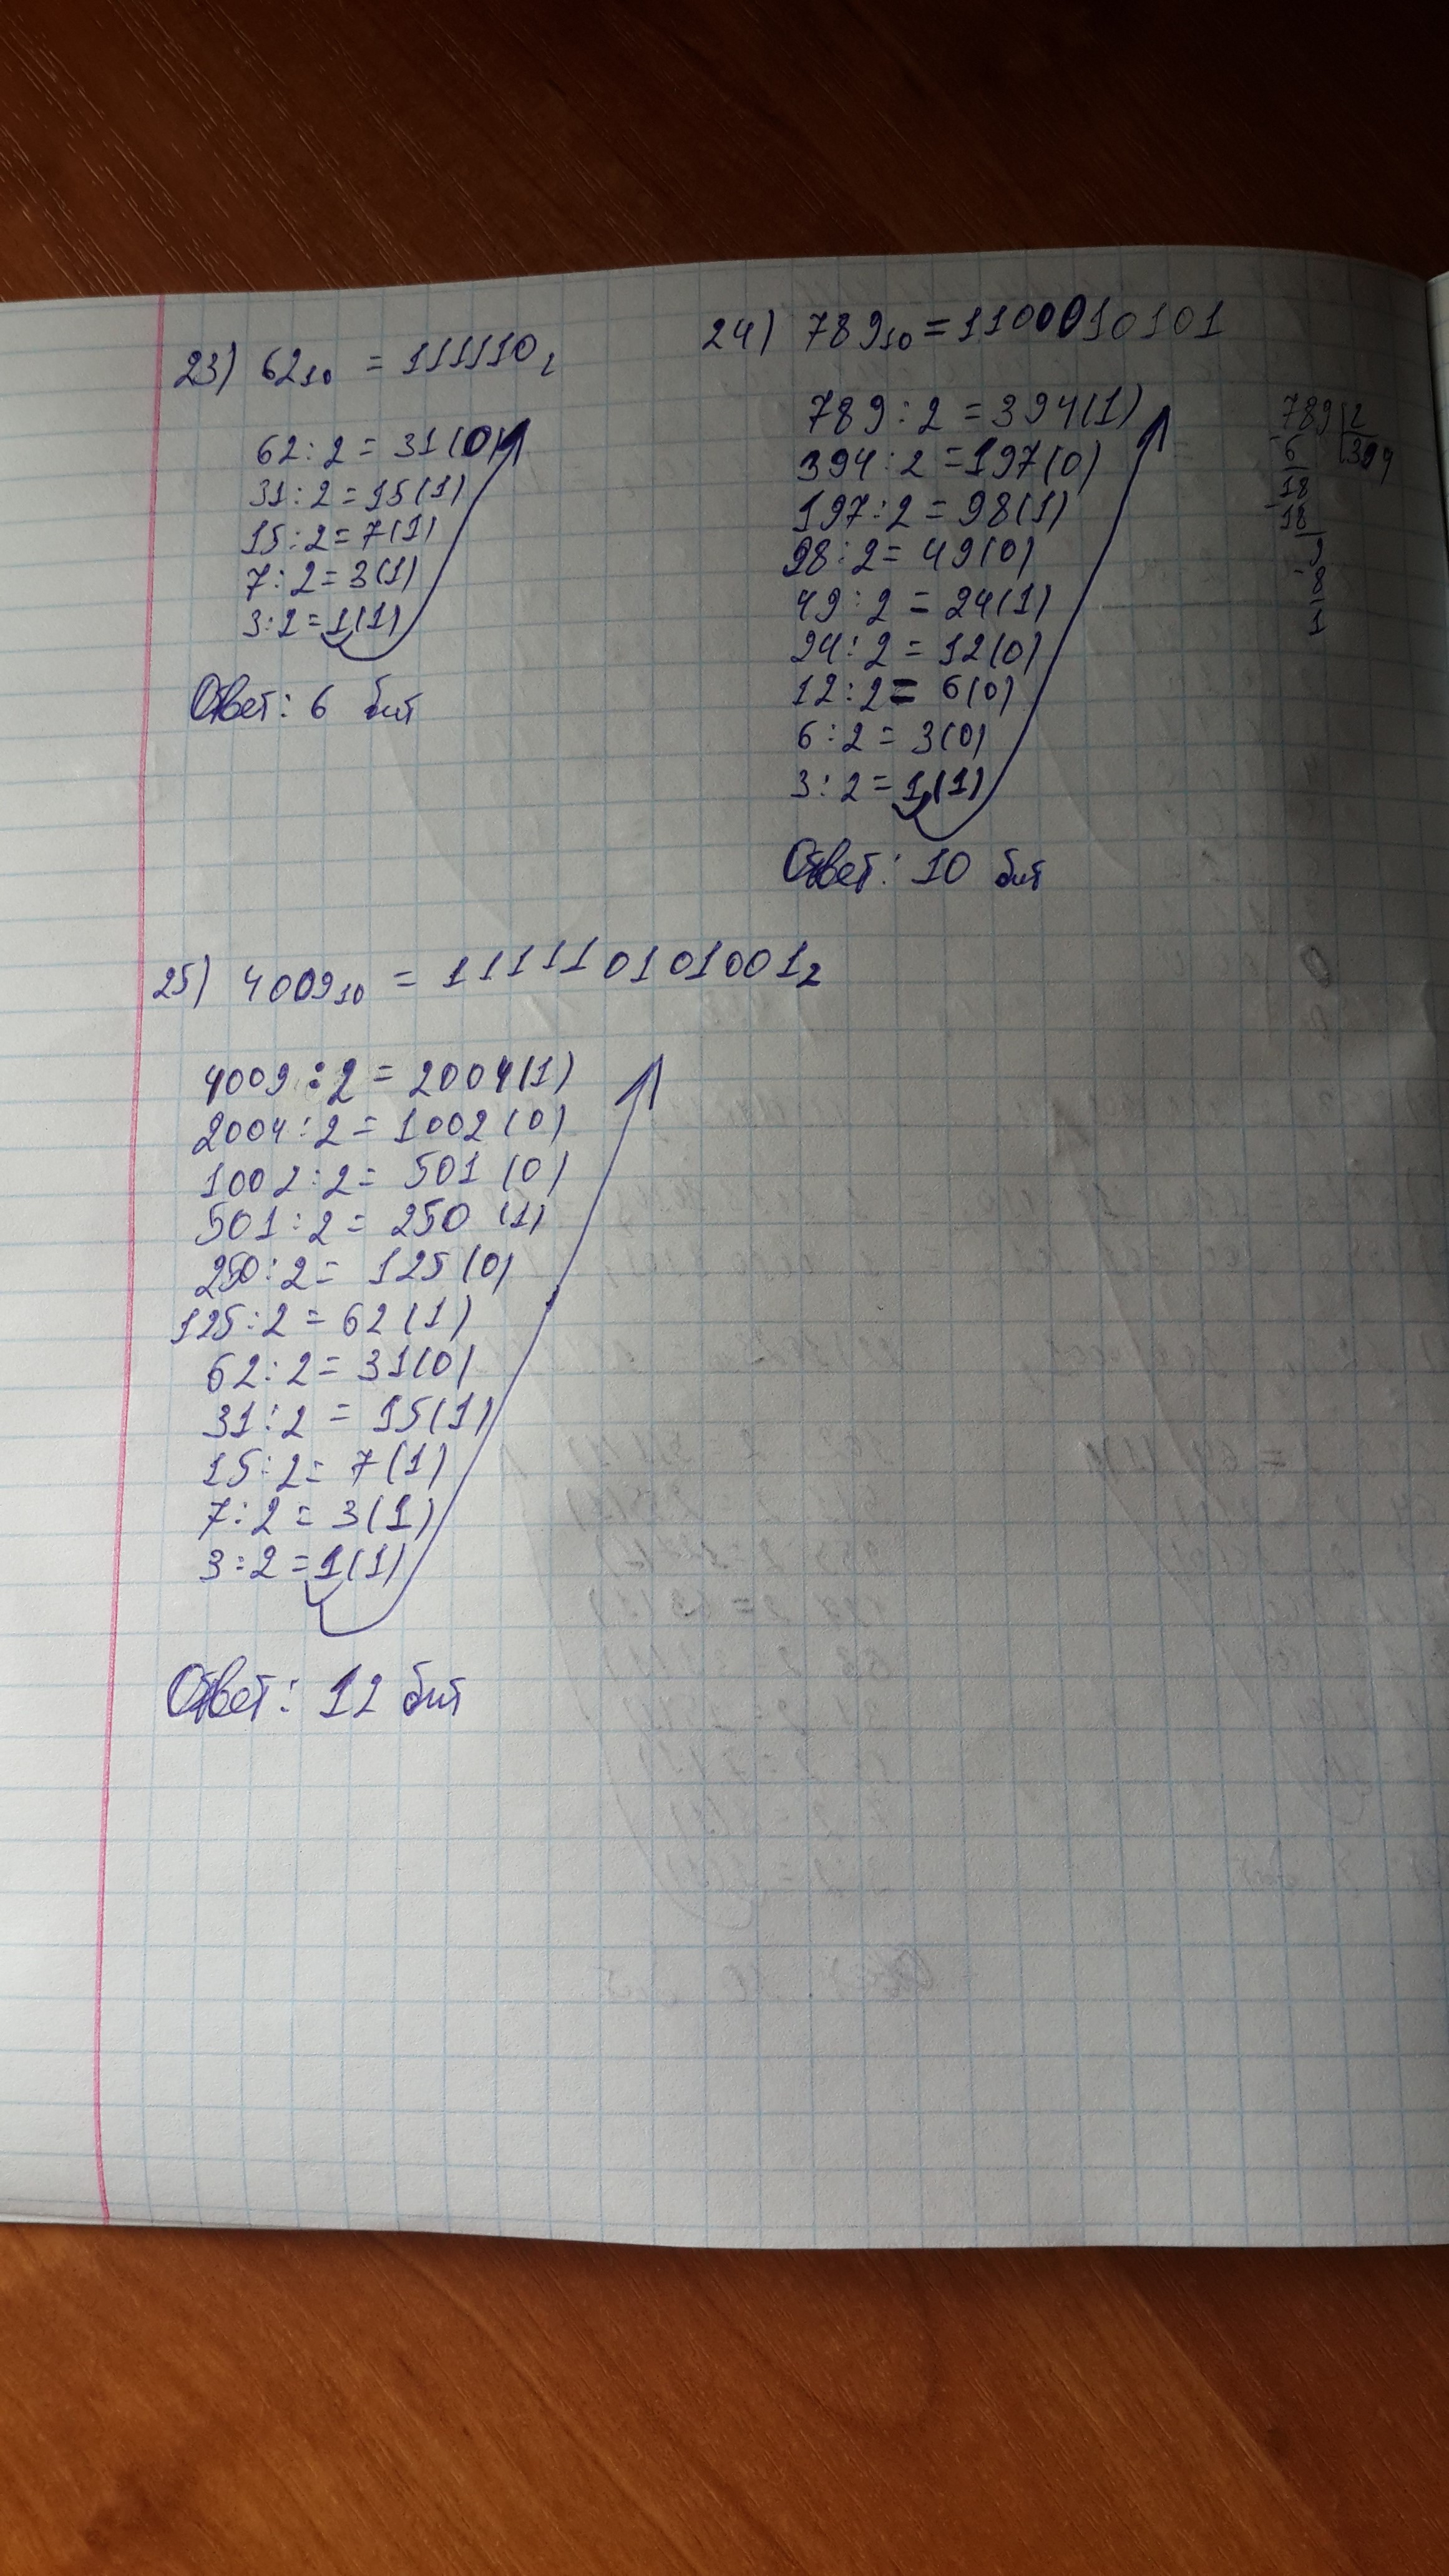 23) 62₁₀ = 111110₂
62:2=31(0)
31:2=15(1)
15:2=7(1)
7:2=3(1)
3:2=1(1)
Ответ: 6 бит
24) 789₁₀=1100010101
789:2=394(1)
394:2=197(0)
197:2=98(1)
98:2=49(0)
49:2=24(1)
24:2=12(0)
12:2=6(0)
6:2=3(0)
3:2=1(1)
Ответ: 10 бит
789 2
-6 394
18
-18
9
-8
1
25) 4009₁₀ = 111110101001₂
4009:2=2004(1)
2004:2=1002(0)
1002:2=501(0)
501:2=250(1)
250:2=125(0)
125:2=62(1)
62:2=31(0)
31:2=15(1)
15:2=7(1)
7:2=3(1)
3:2=1(1)
Ответ: 12 бит